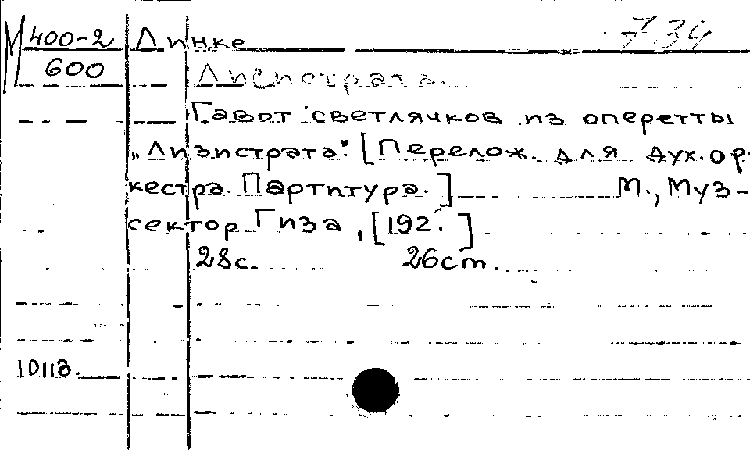 М 400-2 Линке 734
600 Лисистрата.
Гавот светлячков из оперетты
„Лизистрата". [Перелож. для дух. ор-
кестра. Партитура.] М., Муз-
сектор Гиза, [192.]
28с. 26ст.
10113.